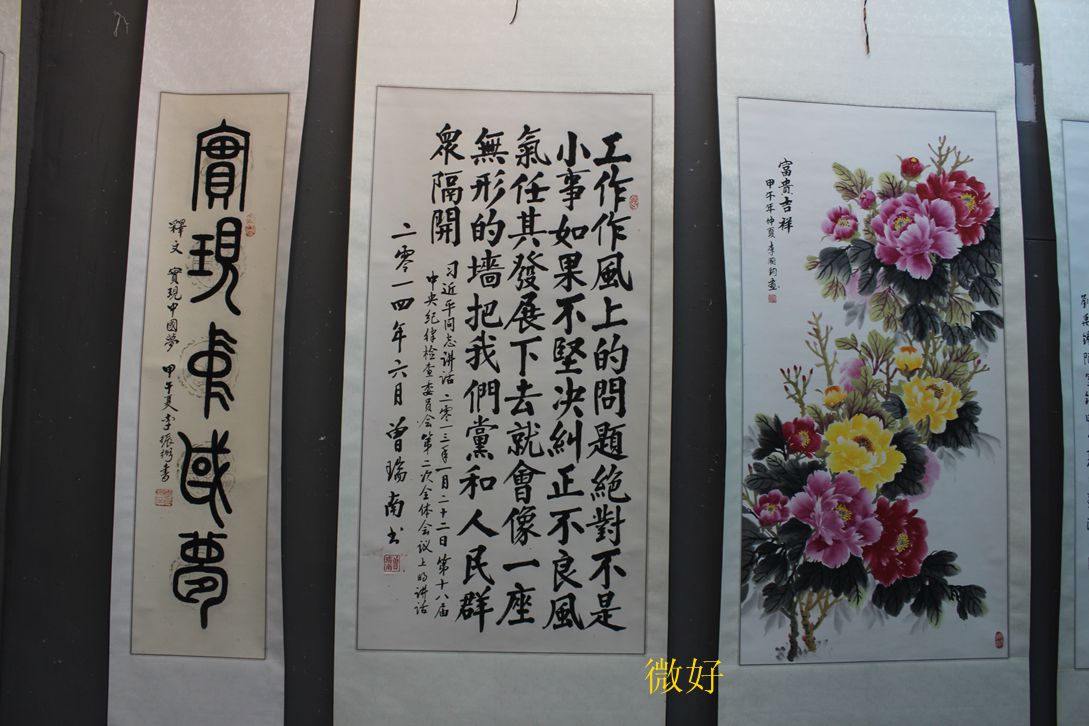 實現中國夢
釋文 實現中國夢 甲午夏李振彬書
工作作風上的問題絕對不是
小事如果不堅决糾正不良風
氣任其發展下去就會像一座
無形的墙把我們黨和人民群
衆隔開
习近平同志讲话 二零一三年一月二十二日 第十八届
中央纪律检查委员会第二次全体会议上的讲话
二零一四年六月曾瑞南书
富貴吉祥
甲午年仲夏李國鈞画
微好